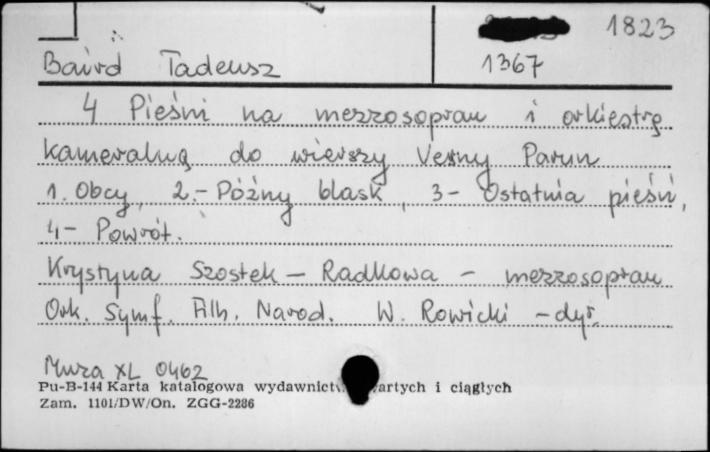 1823
Baird Tadeusz
1367
4 Pieśni na mezzosopran i orkiestrę
kameralną do wierszy Vesny Parun
1. Obcy, 2.- Późny blask, 3- Ostatnia pieśń,
4- Powrót.
Krystyna Szostek - Radkowa - mezzosopran
Ork. Symf. Filh. Narod. W. Rowicki - dyr.
Muza XL 0462
Pu-B-144 Karta katalogowa i ciągłych
Zam. 1101/DW/On. ZGG-2286